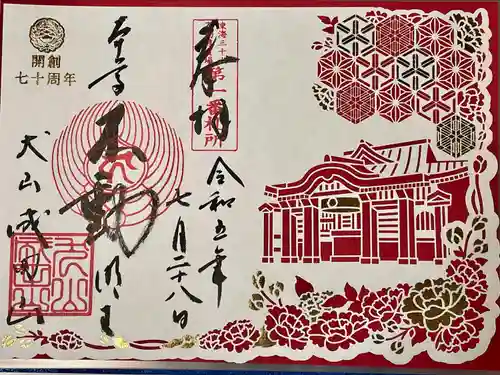 奉拝
東海三十
第一番札所
令和五年
七月二十八日
開創
七十周年
本尊
不動明王
犬山
成田山